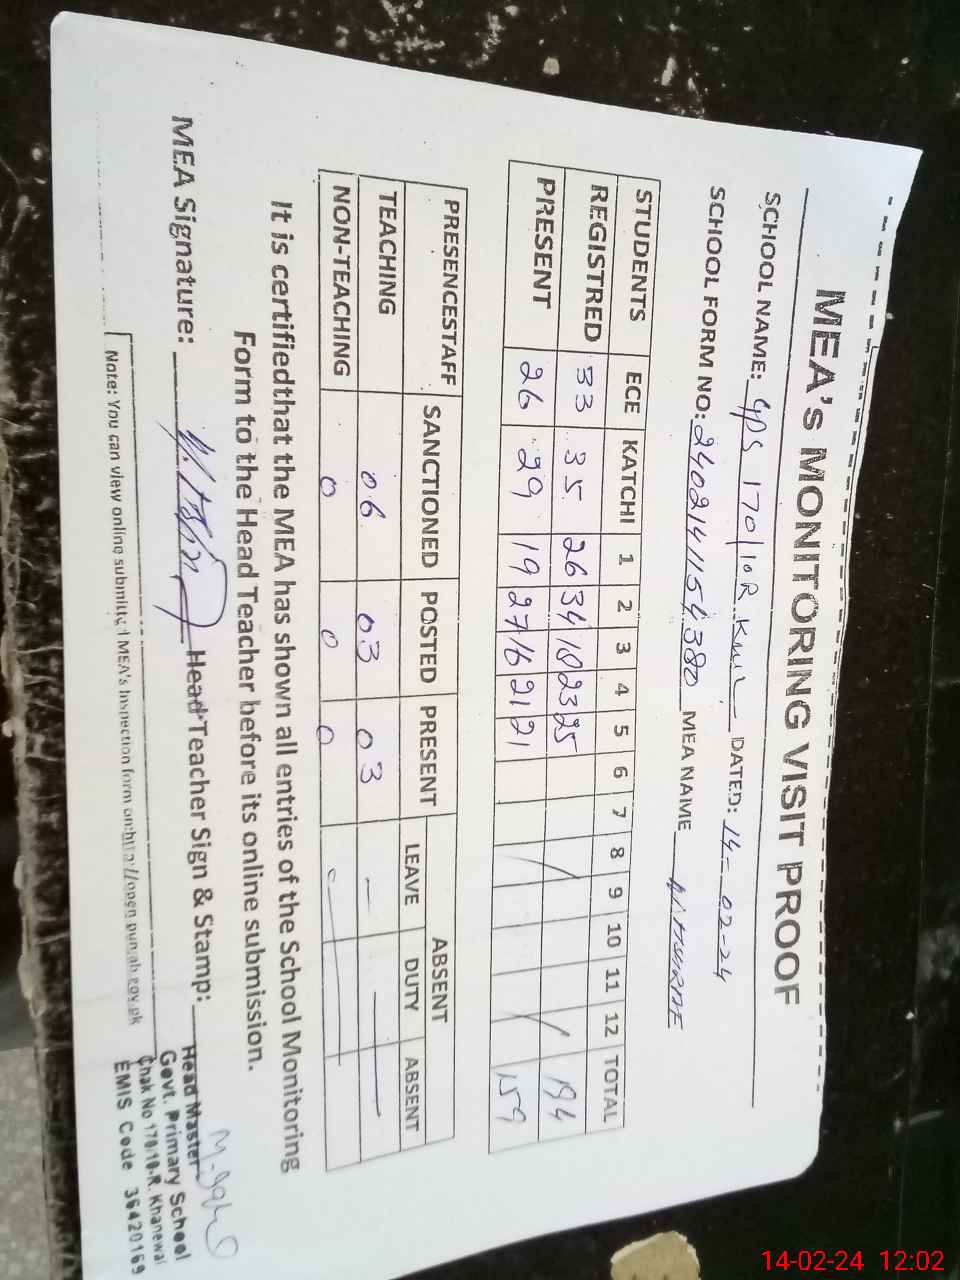 MEA's MONITORING VISIT PROOF
SCHOOL NAME: GPS 170/10R DATED: 14-02-24
SCHOOL FORM NO: 24021411154380 MEA NAME
STUDENTS ECE KATCHI 1 2 3 4 5 6 7 8 9 10 11 12 TOTAL
REGISTRED 33 35 26 34 18 23 25 194
PRESENT 26 29 19 27 16 21 21 159
PRESENCESTAFF SANCTIONED POSTED PRESENT ABSENT
LEAVE DUTY ABSENT
TEACHING 06 03 03
NON-TEACHING 0 0 0
It is certifiedthat the MEA has shown all entries of the School Monitoring
Form to the Head Teacher before its online submission.
MEA Signature: Head Teacher Sign & Stamp:
Head Master
Govt. Primary School
Chak No 170/10-R. Khanewal
EMIS Code 36420169
Note: You can view online submitted MEA's Inspection form on:http://open.punjab.gov.pk
14-02-24 12:02